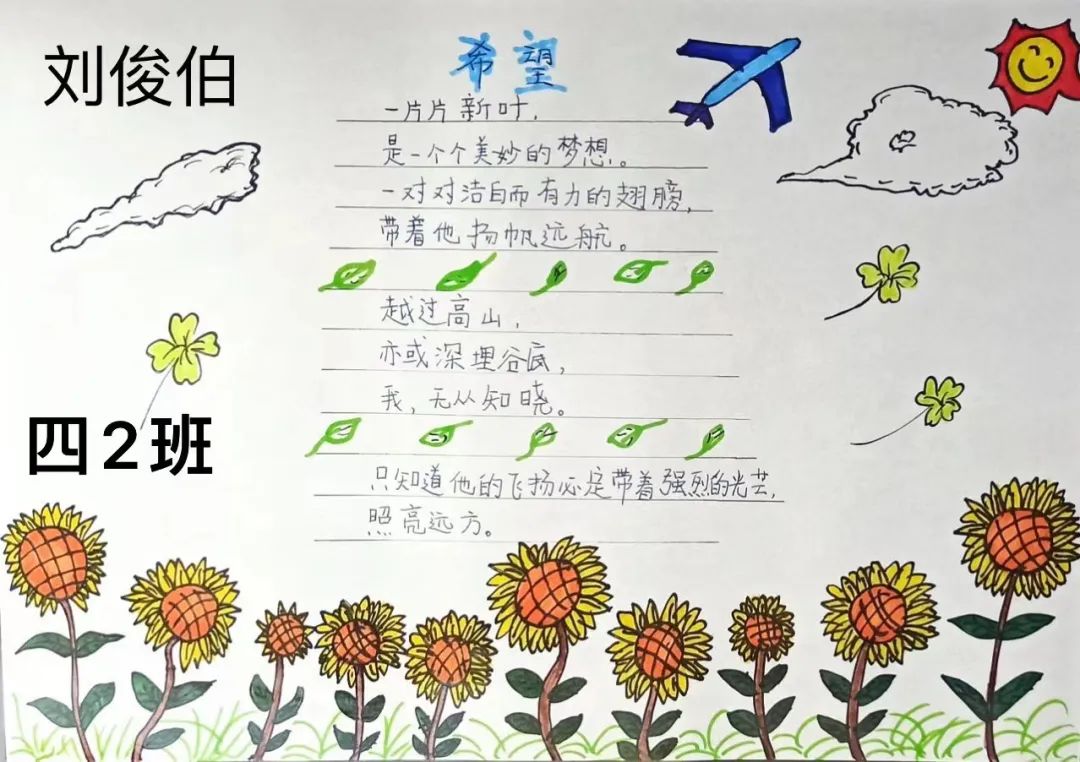 刘俊伯
希望
一片片新叶,
是一个个美妙的梦想。
一对对洁白而有力的翅膀,
带着他扬帆远航。
越过高山,
亦或深埋谷底,
我,无从知晓。
四2班
只知道他的飞扬必定带着强烈的光芒,
照亮远方。